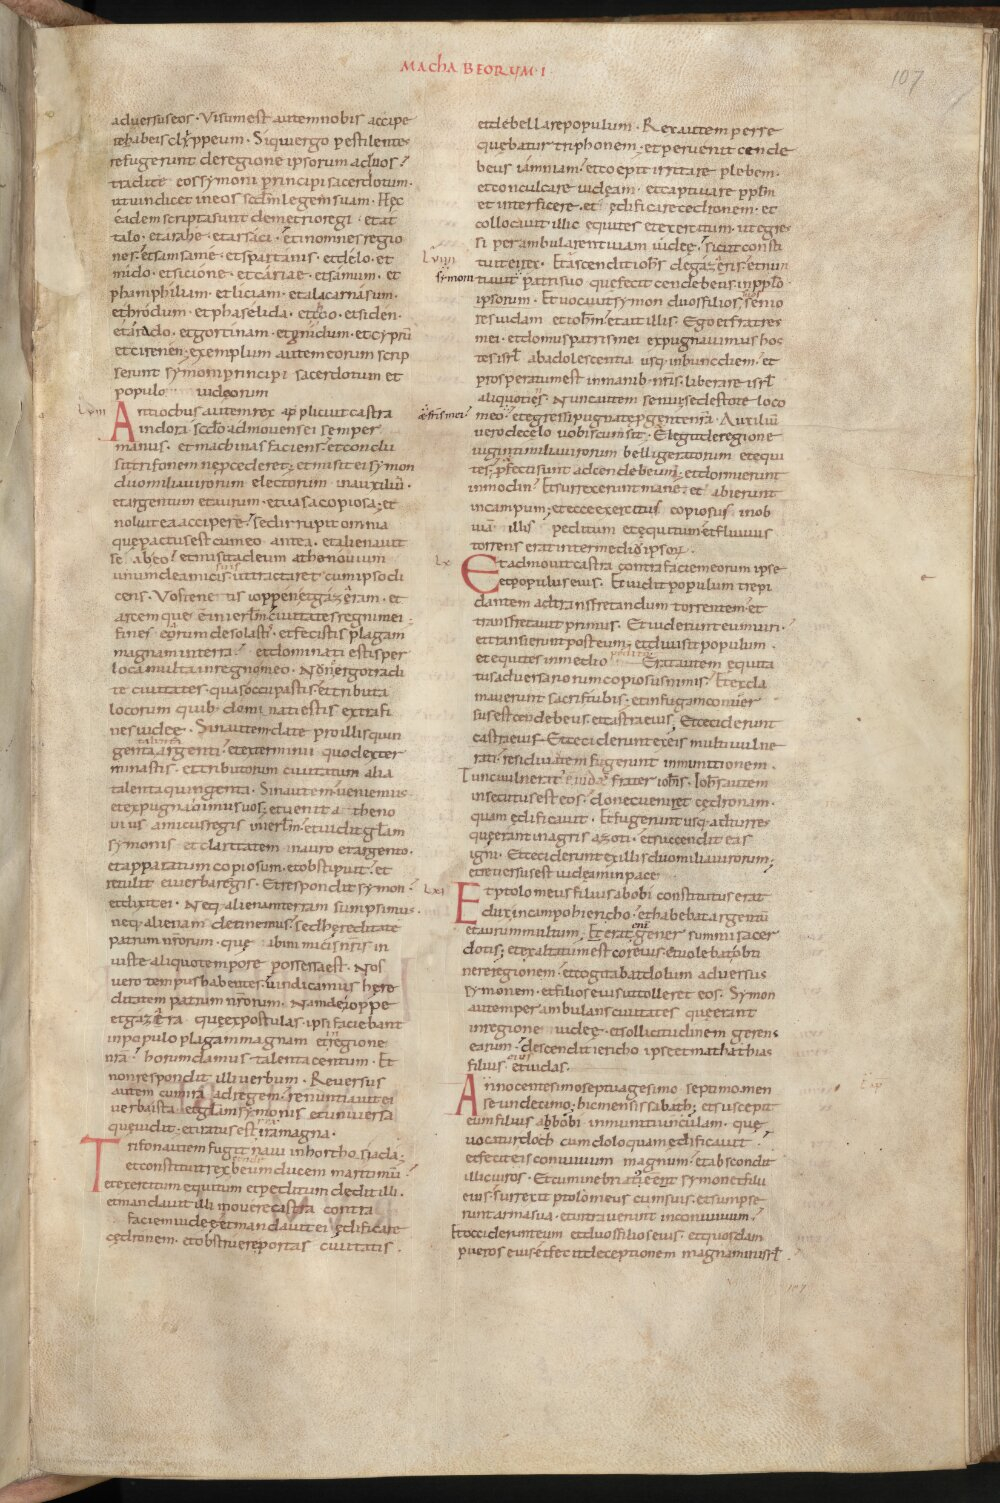 MAChABEORUM · I
107
aduersus eos · Uisum est autem nobis accipe
re habeis clyppeum · Si qui ergo pestilentes
refugerunt de regione ipsorum ad uos
tradite eos symoni principi sacerdotum ·
ut uindicet in eos scdm legem suam · Hęc
eadem scripta sunt demetrio regi · et at
talo · et arahe · et arsaci · et in omnes regio
nes · et samsame · et spartanis · et delo · et
mido · et sicione · et cariae · et samum · et
phamphiliam · et liciam · et alacarnasum ·
et hrodum · et phaselida · et coo · et siden ·
et arado · et gortinam · et gnidum · et cyprū
et cirenen · exemplum autem eorum scrip
serunt symoni principi sacerdotum et
populo iudęorum
LVIII
Antiochus autem rex applicuit castra
in dora · scdo admouens ei semper
manus · et machinas faciens · et conclu
sit trifonem ne pcederet · et misit ei symon
duo milia uirorum electorum in auxiliū ·
et argentum et aurum · et uasa copiosa · et
noluit ea accipere · sed irrupit omnia
que pactus est cum eo antea · et alienauit
se ab eo · et misit ad eum athonouium
unum de amicis suis · ut tractaret cum ipso di
cens · Vos tenetis ioppen et gazeram · et
arcem que ē in ierlm ciuitates regni mei ·
fines eorum desolastis · et fecistis plagam
magnam in terra · et dominati estis per
loca multa in regno meo · Nunc ergo tradi
te ciuitates · quas occupastis · et tributa
locorum quib · dominati estis extra fi
nes iudeę · Sin autem date pro illis quin
genta talenta argenti · et exterminii quod exter
minastis · et tributorum ciuitatum alia
talenta quingenta · Sin autem ueniemus
et expugnabimus uos · et uenit atheno
uius amicus regis in ierlm · et uidit glam
symonis et claritatem in auro et argento ·
et apparatum copiosum · et obstipuit · et
retulit ei uerba regis · Et respondit symon
et dixit ei · Neq · alienam terram sumpsimus ·
neq · alienam detinemus · sed hereditate
patrum nrorum · que ab inimicis nris in
iuste aliquo tempore possessa est · Nos
uero tempus habentes · uindicamus here
ditatem patrum nrorum · Nam de ioppe
et gazęra que expostulas · ipsi faciebant
in populo plagam magnam et in regione
nra · horum damus · talenta centum · Et
non respondit illi uerbum · Reuersus
autem cum ira ad regem · renuntiauit ei
uerba ista · et glam symonis et uniuersa
que uidit · et iratus est ira magna ·
Trifon autem fugit naui in hortho siada ·
et constituit rex cendebeum ducem maritimū
et exercitum equitum et peditum dedit illi ·
et mandauit illi mouere castra contra
faciem iudeę · et mandauit ei ędificare
cędronem · et obstruere portas ciuitatis ·
et debellare populum · Rex autem perse
quebatur triphonem · et peruenit cende
beus iamniam · et coepit irritare plebem ·
et conculcare iudeam · et captiuare pplm
et interficere · et ędificare cedronem · et
collocauit illic equites et exercitum · ut egres
si perambularent uiam iudeę · sicut consti
tuit ei rex · Et ascendit iohs de gazeris · et nun
LVIIII
symoni
tiauit patri suo que fecit cendebeus in pplo
ipsorum · Et uocauit symon duos filios senio
res iudam et iohm · et ait illis · Ego et fratres
mei · et domus patris mei expugnauimus hos
tes isrl ab adolescentia usq · in hunc diem · et
prosperatum est in manib · nris · liberare isrl
aliquoties · Nunc autem senui · sed estote loco
et fris mei
meo · et egressi pugnate p gente nra · Auxiliū
uero de celo uobiscum sit · Elegit de regione
uiginti milia uirorum belligeratorum et equi
tes · pfecti sunt ad cendebeum · et dormierunt
in modin · Et surrexerunt mane · et abierunt
in campum · et ecce exercitus copiosus in ob
uiā illis peditum et equitum · et fluuius
torrens erat inter medio ipsorum ·
LX
Et admouit castra contra faciem eorum ipse
et populus eius · Et uidit populum trepi
dantem ad transfretandum torrentem · et
transfretauit primus · Et uiderunt eum uiri ·
et transierunt post eum · et diuisit populum ·
et equites in medio peditū · Erat autem equita
tus aduersariorum copiosus nimis · Et excla
mauerunt sacris tubis · et in fugam conuer
sus est cendebeus et castra eius · Et ceciderunt
castra eius · Et ceciderunt ex eis multi uulne
rati · residui autem fugerunt in munitionem ·
Tunc uulnerat · ē iudas frater iohis · Iohs autem
insecutus est eos · donec ueniret cędronam ·
quam ędificauit · Et fugerunt usq · ad turres
que erant in agris azoti · et succendit eas
igni · Et ceciderunt ex illis duo milia uirorum ·
et reuersus est iudeam in pace
LXI
Et ptolomeus filius abobi constitutus erat
dux in campo hiericho · et habebat argentū
et aurum multum · Erat enī gener summi sacer
dotis · et exaltatum est cor eius · et uolebat obti
nere regionem · et cogitabat dolum aduersus
symonem · et filios eius ut tolleret eos · Symon
autem perambulans ciuitates que erant
in regione iudeę · et sollicitudinem gerens
earum · descendit iericho ipse et mathathias
filius eius · et iudas ·
Anno centesimo septuagesimo septimo men
se undecimo · hic mensis sabath · et suscepit
eum filius abbobi in munitiunculam · que
uocatur doch cum dolo quam ędificauit
et fecit eis conuiuium magnum · et abscondit
illic uiros · Et cum inebriatus esset symon et filii
eius · surrexit ptolomeus cum suis · et sumpse
runt arma sua · et intrauerunt in conuiuium ·
Et occiderunt eum et duos filios eius · et quosdam
pueros eius · et fecit deceptionem magnam in isrl ·
107